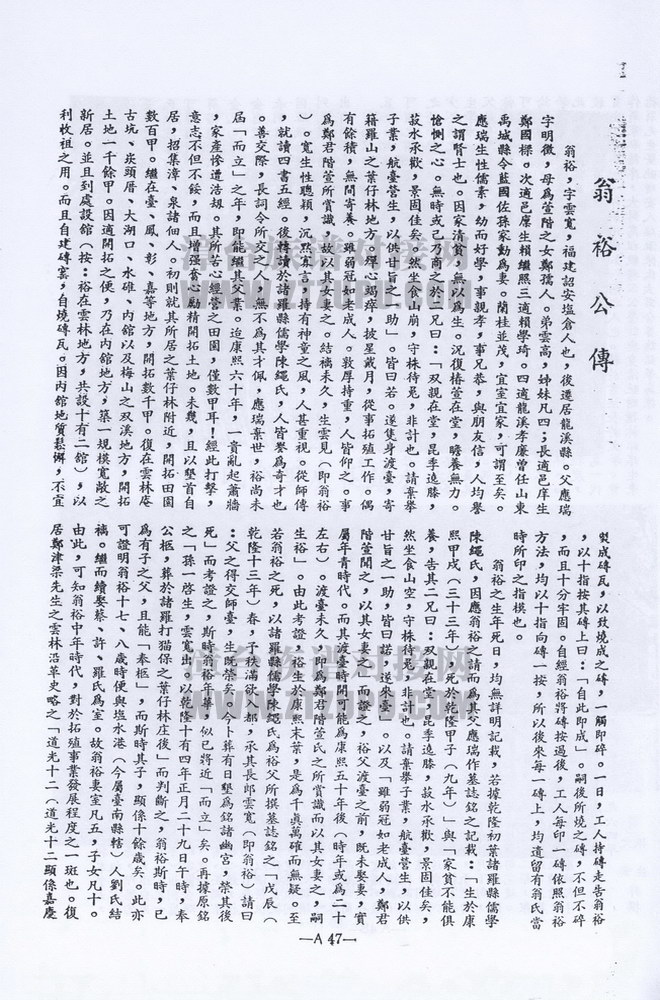 翁裕公傳
翁裕,字雲寬,福建詔安塩倉人也,後遷居龍溪縣。父應瑞
字明徵,母為萱階之女鄭孺人。弟雲高,姊妹凡四;長適邑庠生
鄭國樑。次適邑庠生賴繼熙三適賴學琦。四適龍溪孝廉曾任山東
禹城縣令藍國佐孫家勳為妻。蘭桂並茂,宜室宜家,可謂至矣。
應瑞生性儒素,幼而好學,事親孝,事兄恭,與朋友信,人均譽
之謂賢士也。因家清貧,無以為生。況復椿萱在堂,瞻養無力。
愴惻之心。無時或已乃商之於二兄曰:「双親在堂,昆季遶膝,
菽水承歡,景固佳矣。然坐食山崩,守株待兎,非計也。請棄舉
子業,航臺營生,以供甘旨之一助」。皆曰若。遂隻身渡臺,寄
籍羅山之葉仔林地方。殫心竭瘁,披星戴月,從事拓殖工作。偶
有餘積,無間寄養。雖弱冠如老成人。敦厚持重,人皆仰之。事
為鄭君階萱所賞識,故以其女妻之。結褵未久,生雲見(即翁裕
)。寬生性聰穎,沉然真言,持有神童之風,人甚重視。從師傳
,就讀四書五經。後轉讀於諸羅縣儒學陳繩氏,人皆譽為奇才也
。善交際,長詞令所交之人,無不為其才佩,應瑞棄世,裕尚未
屆「而立」之年,即能繼其父業。迨康熙六十年,一貴亂起蕭牆
,家產慘遭浩刼。其所苦心經營之田園,僅數甲耳!經此打擊,
意志不但不綏,而且增强奮心勵精開拓土地。未幾,且以墾首自
居,招集漳、泉諸佃人。初則就其所居之葉仔林附近,開拓田園
數百甲。繼在臺、鳳、彰、嘉等地方,開拓數千甲。復在雲林庵
古坑、崁頭厝、大湖口、水碓、內館以及梅山之双溪地方,開拓
土地一千餘甲。因適開拓之便,乃在內館地方,築一規模寬敞之
新居。並且到處設館(按:裕在雲林地方,共設十有二館),以
利收租之用。而且自建磚窰,自燒磚瓦。因內館地質鬆懈,不宜
製成磚瓦,以致燒成之磚,一觸即碎。一日,工人持磚走告翁裕
,以十指按其磚上曰:「自此即成」。嗣後所燒之磚,不但不碎
,而且十分牢固。自經翁裕將磚按過後,工人每印一磚依照翁裕
方法,均以十指向磚一按,所以後來每一磚上,均遺留有翁氏當
時所印之指模也。
翁裕之生年死日,均無詳明記載,若據乾隆初葉諸羅縣儒學
陳繩氏,因應翁裕之請而為其父應瑞作墓誌銘之記載:「生於康
熙甲戌(三十三年)死於乾隆甲子(九年)」與「家貧不能俱
養,告其二兄曰:双親在堂,昆季遶膝,菽水承歡,景固佳矣,
然坐食山空,守株待兎,非計也。請棄舉子業,航臺營生,以供
甘旨之一助,皆曰諾,遂來臺」。以及「雖弱冠如老成人,鄭君
階萱聞之,以其女妻之」而證之,裕父渡臺之前,既未娶妻,實
屬年青時代。而其渡臺時間可能為康熙五十年後(時年或為二十
左右)。渡臺未久,即為鄭君階萱氏之所賞識而以其女妻之,嗣
生裕」。由此考證,裕生於康熙末葉,是為千真萬確而無疑。至
若翁裕之死,以諸羅縣儒學陳繩氏為裕父所撰墓誌銘之「戊辰(
乾隆十三年)春,予秩滿欲北都,承其長郎雲寬(即翁裕)請曰
:父之得交師臺,生既榮矣。今卜葬有日墾為銘諸幽宮,榮其後
死」而考證之,斯時翁裕年華,似已將近「而立」矣。再據原銘
之「孫一啓生,雲寬出,以乾隆十有四年正月二十九日午時,奉
公柩,葬於諸羅打猫保之葉仔林庄後」而判斷之,翁裕斯時,已
為有子之父,且能「奉柩」,而斯時其子,顯係十餘歲矣。此亦
可證明翁裕十七、八歲時便與塩水港(今屬臺南縣轄)人劉氏結
褵。繼而續娶蔡、許、羅氏為室。故翁裕妻室凡五,子女凡十。
由此,可知翁裕中年時代,對於拓殖事業發展程度之一斑也。復
居鄭津梁先生之雲林沿革史略之「道光十二(道光十二顯係嘉慶
—A 47—